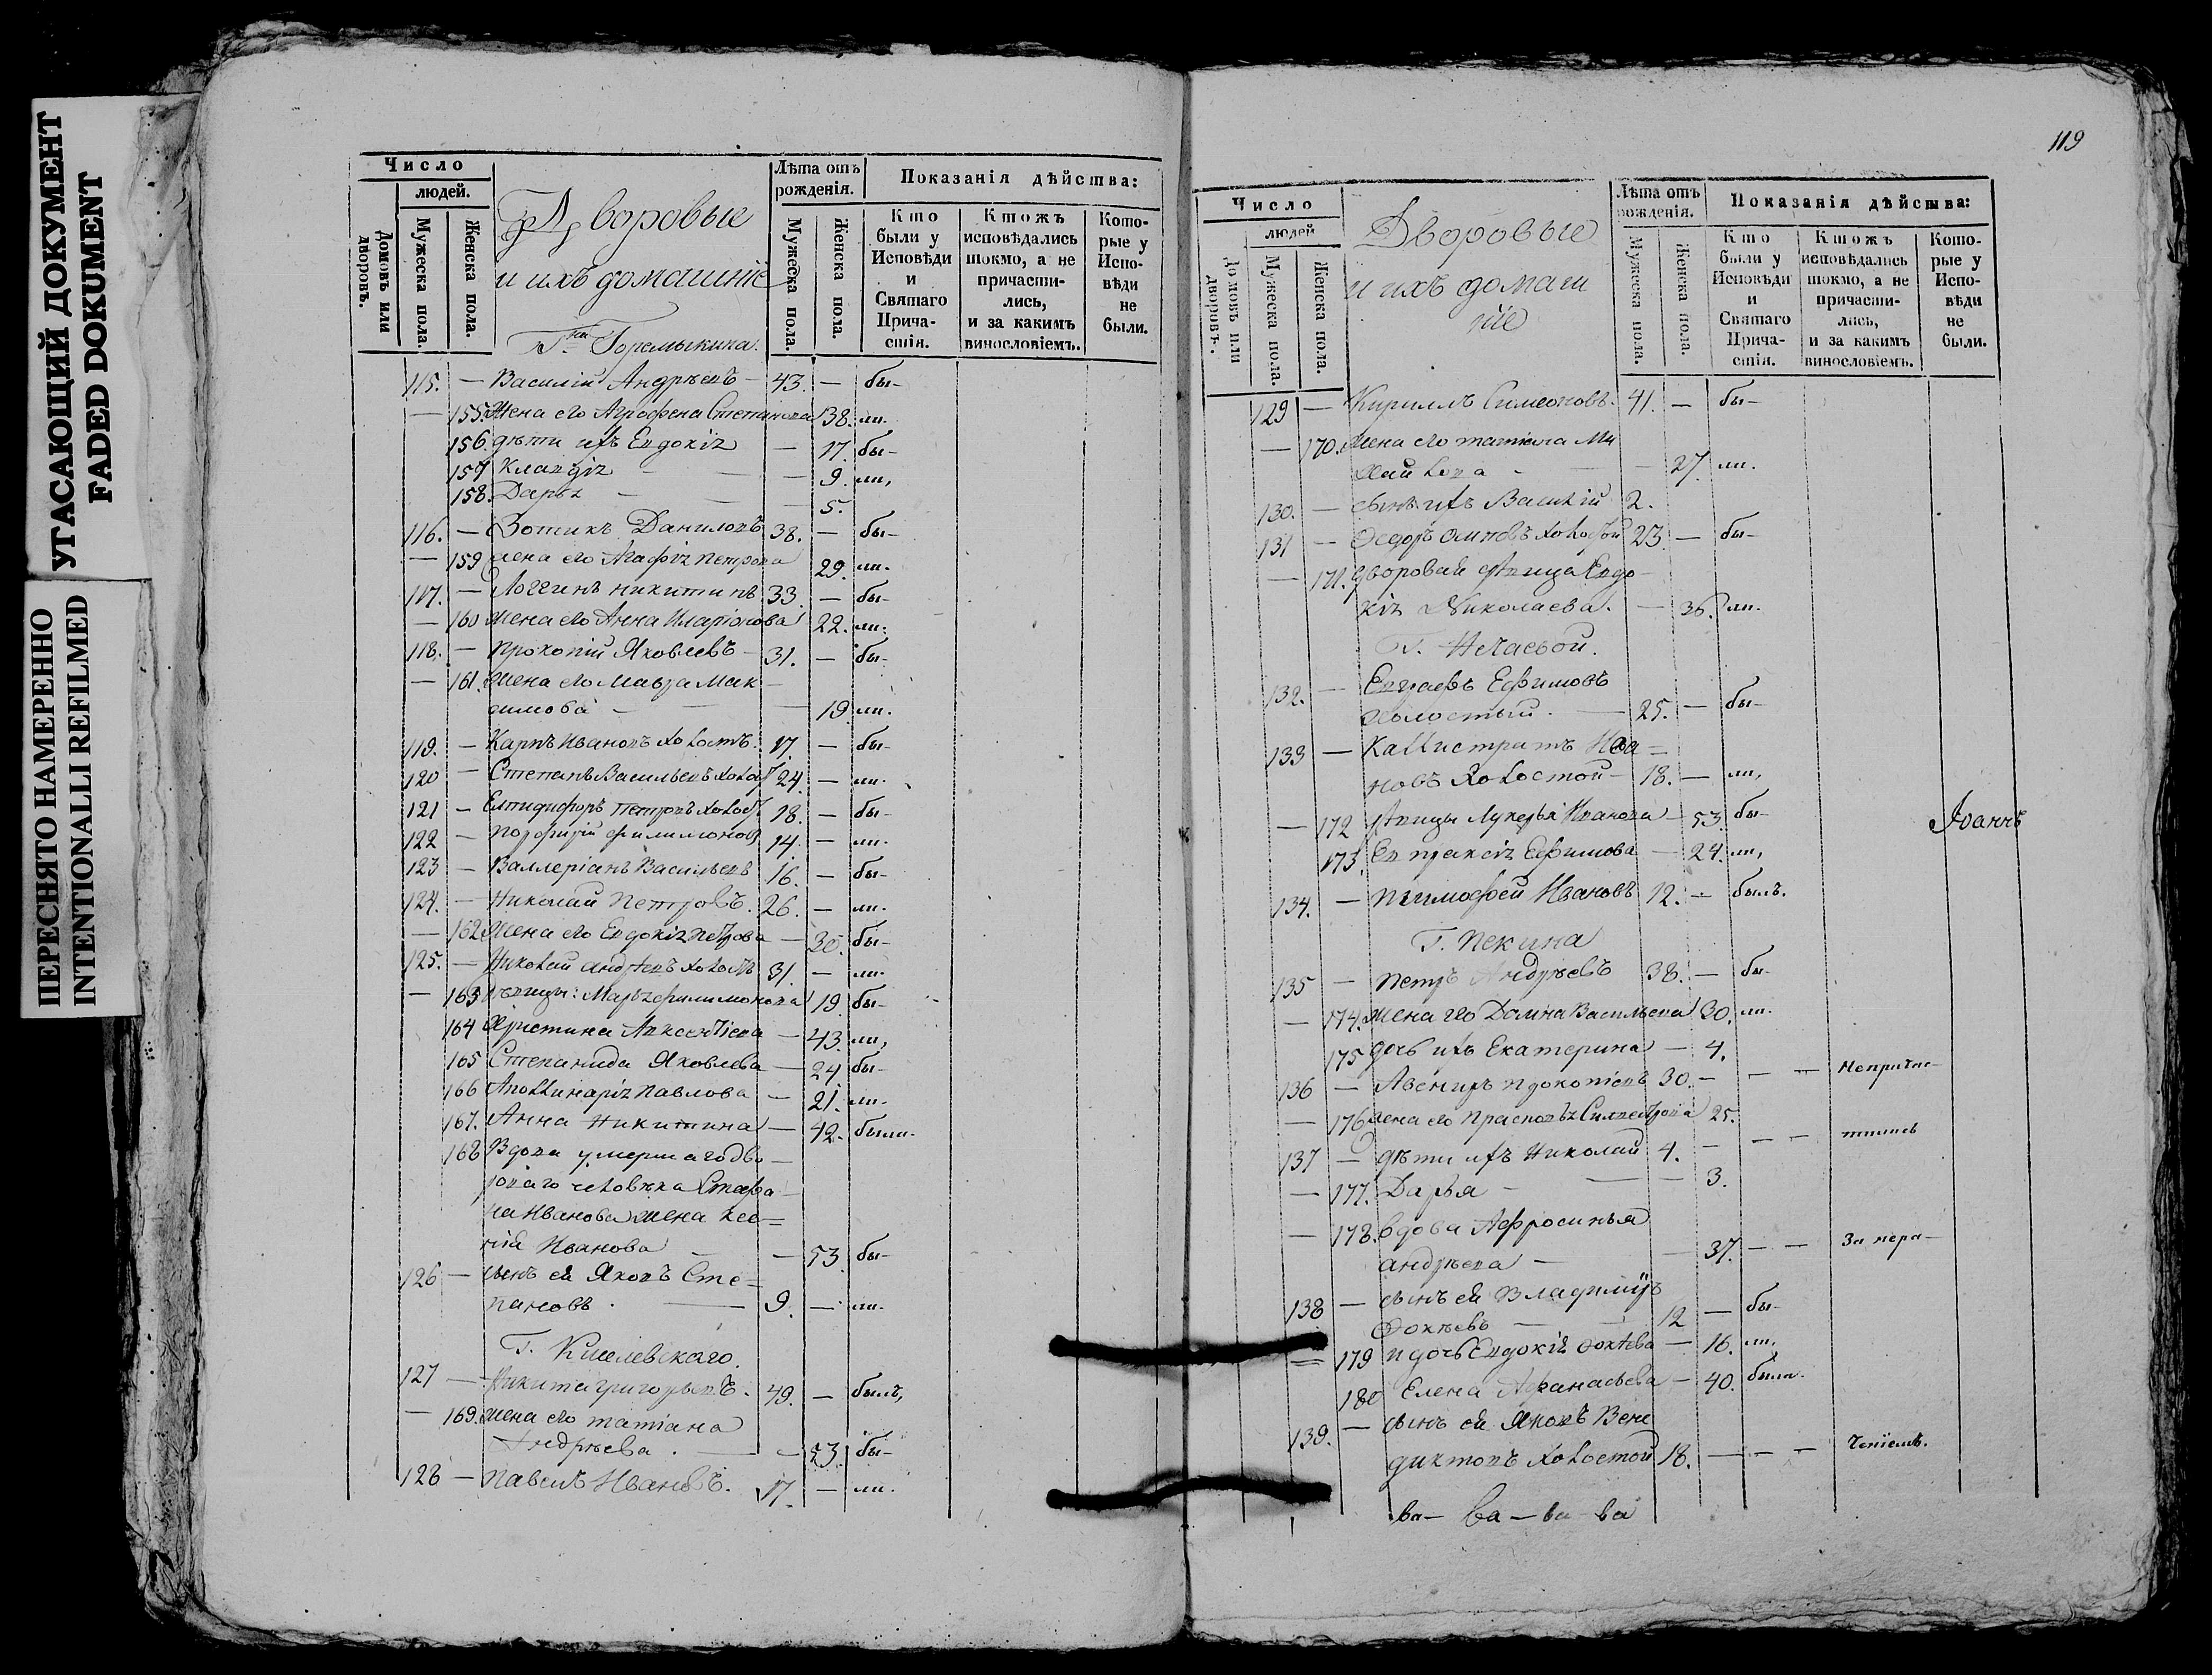 УТАСАЮЩИЙ ДОКУМЕНТ
FADED DOKUMENT
ПЕРЕСНЯТО НАМЕРЕННО
INTENTIONALLI REFILMED
Число
людей.
Домовъ или дворовъ.
Мужеска пола.
Женска пола.
Дворовые
и ихъ домашніе
Горемыкина.
Лѣта отъ рожденія.
Мужеска пола.
Женска пола.
Показанія дѣйства:
Кто были у Исповѣди и Святаго Прича-стія.
Ктожъ исповѣдались токмо, а не причасти-лись, и за какимъ винословіемъ.
Кото-рые у Испо-вѣди не были.
115. — Василій Андрѣевъ — 43. — бы-
— 155. Жена его Агрофена Степанова 38. ли.
156. дѣти ихъ Евдокія — 17. бы-
157 Клавдія — — 9. ли,
158. Дарья — — 5.
116. — Зотикъ Даниловъ 38. — бы-
— 159 жена его Агафія Петрова 29. ли.
117. — Логгинъ Никитинъ 33. — бы-
— 160 жена его Анна Иларіонова 22. ли.
118. — Прокопій Яковлевъ — 31. — бы-
— 161. Жена его Мавра Мак-
симова — — 19 ли.
119. — Карпъ Ивановъ холостъ. 17. — бы-
120 — Степанъ Васильевъ холос 24. — ли.
121 — Елпидифоръ Петровъ холос. 18. — бы-
122 — Порфирій Филимонов 14. — ли.
123 — Валлеріанъ Васильевъ 16. — бы-
124. — Николай Петровъ. 26. — ли.
— 162 Жена его Евдокія Петрова — 30. бы-
125. — Николай Андреевъ холостъ 31. — ли.
— 163 Дѣвицы: Марья Филимонова 19. бы-
164 Христина Авксентіева — 43. ли,
165 Степанида Яковлева — 24. бы-
166 Аполлинарія Павлова — 21. ли.
167. Анна Никитина — 42. были.
168 Вдова умершаго дво-
роваго человѣка Стефа-
на Иванова жена Ксе=
нія Иванова — — 53. бы-
126 — сынъ ея Яковъ Сте=
пановъ. — 9. — ли.
Г. Киселевскаго.
127 — Никита Григорьевъ. 49. — былъ,
— 169. жена его Татіана
Андрѣева. — — 53. бы-
128 — Павелъ Ивановъ. 17. — ли.
119
Число
людей
Домовъ или дворовъ.
Мужеска пола.
Женска пола.
Дворовые
и ихъ домаш
ніе
Лѣта отъ рожденія.
Мужеска пола.
Женска пола.
Показанія дѣйства:
Кто были у Исповѣди и Святаго Прича-стія.
Ктожъ исповѣдались токмо, а не причасти-лись, и за какимъ винословіемъ.
Кото-рые у Испо-вѣди не были.
129 — Кириллъ Симеоновъ. 41. — бы-
— 170. Жена его Татіана Ми
хайлова — — 27. ли.
130. — сынъ ихъ Василій 2.
131 — Федоръ Осиповъ холостой 23 — бы-
— 171. дворовая дѣвица Евдо-
кія Николаева. — 36. ли.
132. — Евграфъ Ефимовъ
холостый. — 25. — бы-
133 — Каллистратъ Ива=
новъ холостой — 18. — ли,
— 172 дѣвицы Лукерья Иванова — 53. бы-
173. Евпраксія Ефимова — 24. ли,
134. — Тимофей Ивановъ 12. — былъ.
Іоаннъ
Г. Пекина
135 — Петръ Андрѣевъ 38. — бы-
— 174. Жена его Домна Васильева 30. ли.
175 дочь ихъ Екатерина — 4.
136 — Авениръ Прокопіевъ 30. — — — Непричас-
— 176 жена его Прасковья Сильвестрова 25.
137 — дѣти ихъ Николай 4. — — — тились
— 177. Дарья — — 3.
— 178. вдова Афросинья
Андрѣева — — 37. — — За нера-
138 — сынъ ея Владиміръ
Фокѣевъ — 12 — бы-
= 179 и дочь Евдокія Фокѣева — 16. ли,
180 Елена Афанасьева — 40. была.
139. — сынъ ея Яковъ Вене
диктовъ холостой 18. — — — ченіемъ.
ва — ва — ва — ва